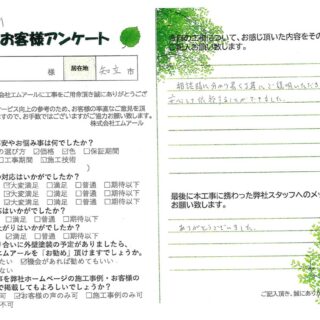 お客様アンケート
様
居在地
知立市
株式会社エムアールに工事をご用命頂き誠にありがとうござ
ービス向上の参考のため、お客様の率直なご意見を頂
ますので、お手数ではございますがご協力お願い致します。
株式会社エムアール
安やお悩み事は何でしたか?
の選び方 ☑価格 ☑色 □保証期間
□工事期間 ☑施工技術
の対応はいかがでしたか?
☑大変満足 □満足 □普通 □期待以下
☑大変満足 □満足 □普通 □期待以下
☑大変満足 □満足 □普通 □期待以下
応はいかがでしたか?
足 □普通 □期待以下
がりはいかがでしたか?
足 □普通 □期待以下
り合いに外壁塗装の予定がありましたら、
エムアールを「お勧め」頂けますでしょうか。
たい ☑機会があれば勧めてもいい
ない
事を弊社ホームページの施工事例・お客様の
で掲載してもよろしいでしょうか?
可 ☑お客様の声のみ可 □施工事例のみ可
不可
今回の工事について、お感じ頂いた内容をその
ご記入お願い致します。
安心してお任せすることができました。
最後に本工事に携わった弊社スタッフへのメッ
お願い致します。
ありがとうございました。
ご記入頂き、誠にあり